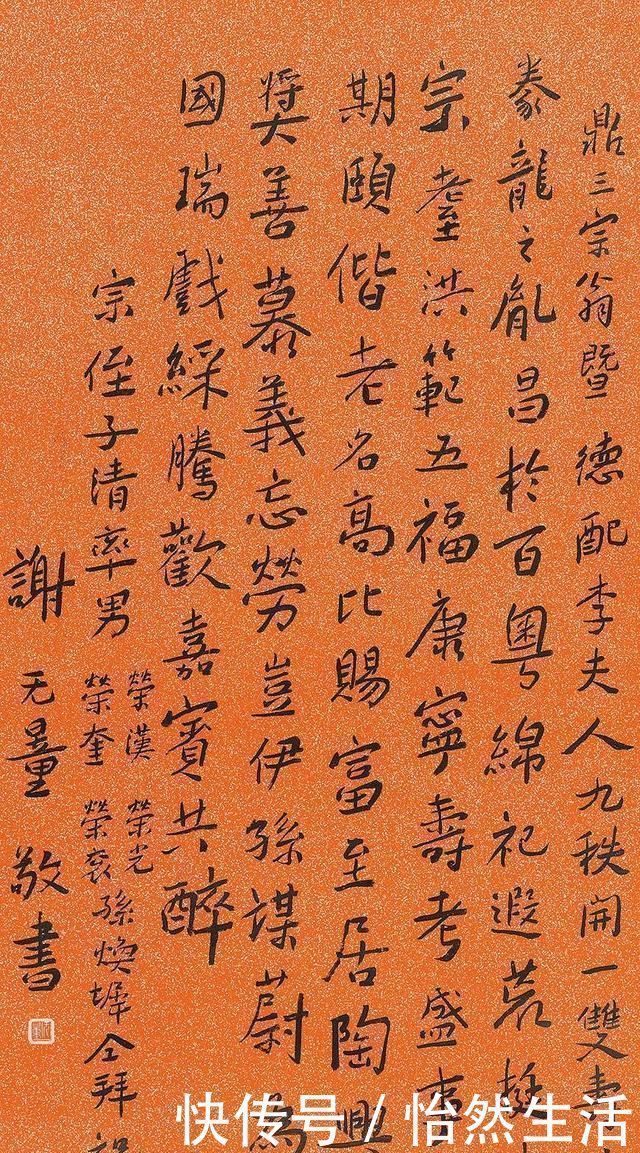 鼎三宗翁暨德配李夫人九秩開一雙壽
豢龍之胤昌於百粵綿祀遐荒挺
宗耄洪範五福康寧壽考盛事
期頤偕老名高比賜富至居陶興
獎善慕義忘勞豈伊孫謀蔚為
國瑞戲綵騰歡嘉賓共醉
宗侄子清率男榮漢榮奎榮光榮袞孫煥墀仝拜祝
謝无量敬書
快传号/怡然生活